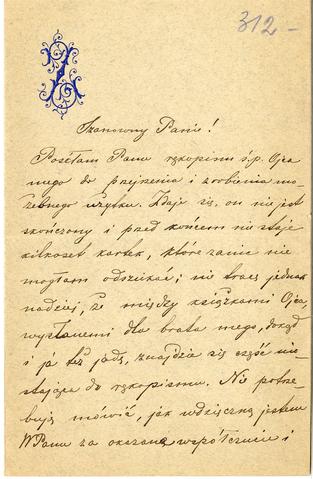 312 -
Szanowny Panie!
Posełam Panu rękopism ś.p. Ojca
mego do przejrzenia i zrobienia mo-
żebnego użytku. Zdaje się, on nie jest
skończony i przed końcem nie staje
kilkoset kartek, które zanic nie
mogłam odszukać; nie tracę jednak
nadziei, że między książkami Ojca,
wysłanemi dla brata mego, dokąd
i ja też jadę, znajdzie się część nie-
stająca do rękopismu. Nie potrze-
buję mówić, jak wdzięczną jestem
WPanu za okazane współczucie i